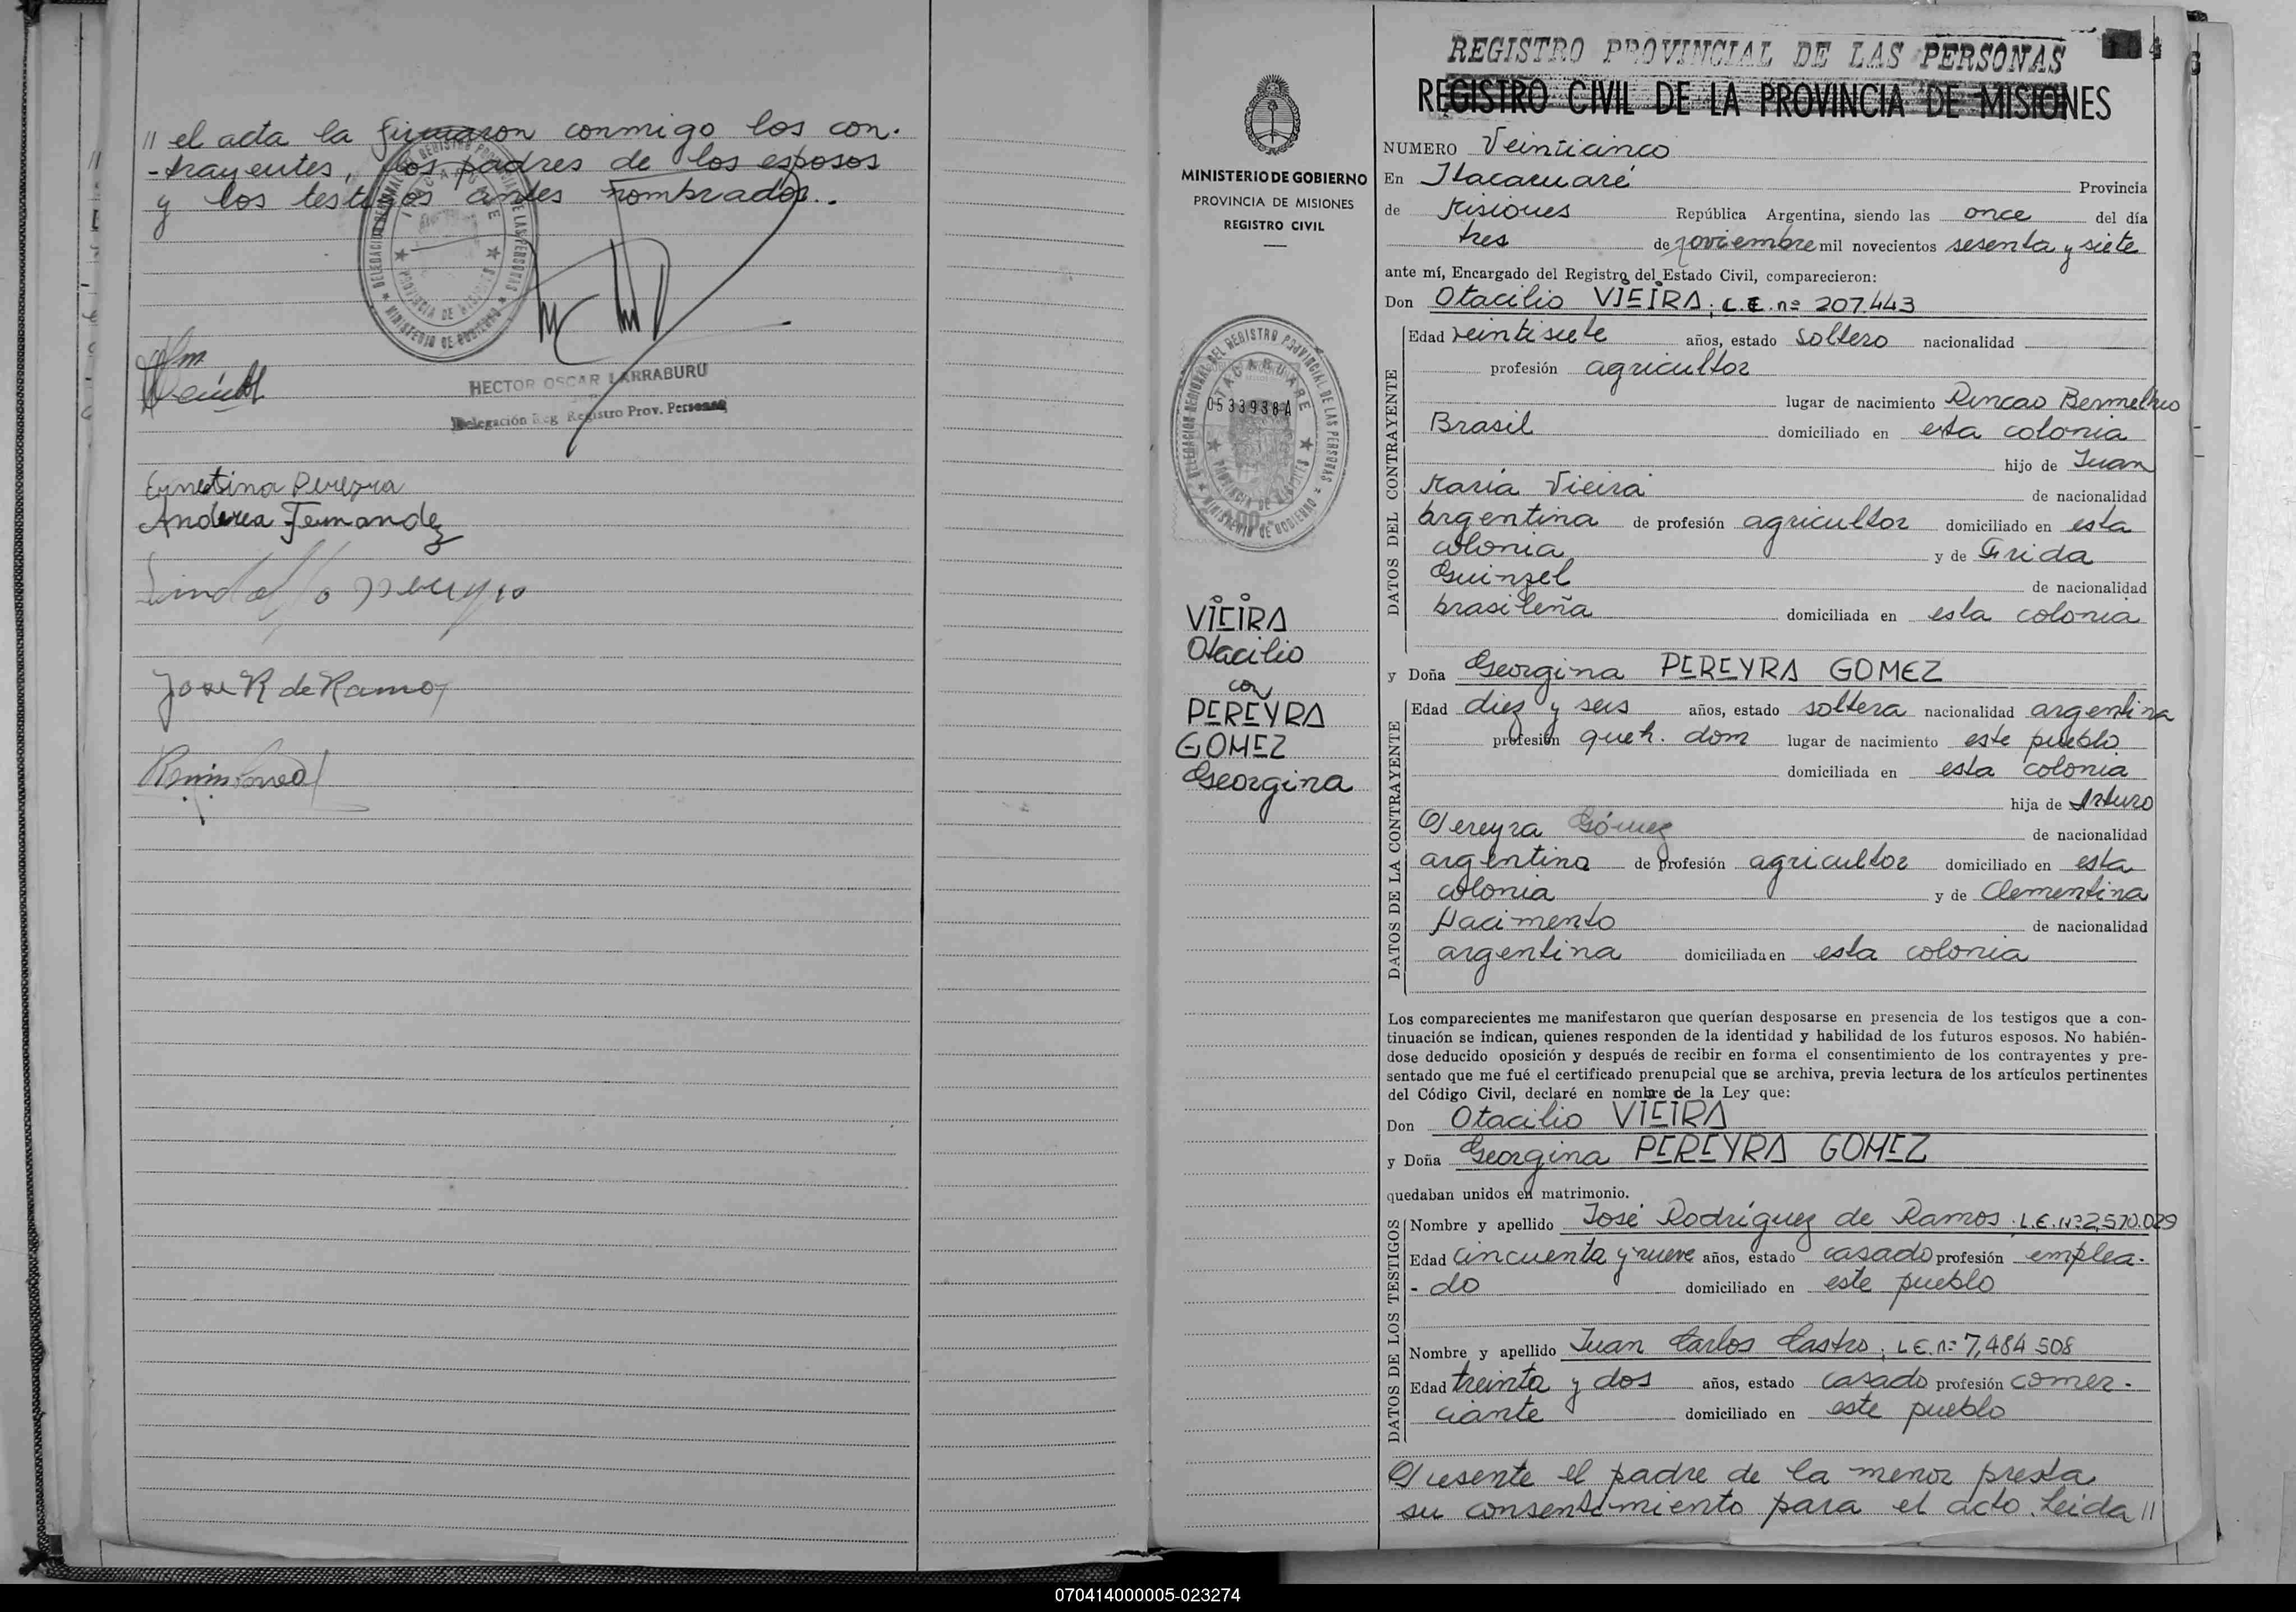 // el acta la firmaron conmigo los con-
-trayentes, los padres de los esposos
y los testigos antes nombrados.-
HECTOR OSCAR LARRABURU
Delegación Reg Registro Prov. Personas
Ernestina Pereyra
Anderea Fernandez
Jose R de Ramos
MINISTERIO DE GOBIERNO
PROVINCIA DE MISIONES
REGISTRO CIVIL
DELEGACION REGIONAL DEL REGISTRO PROVINCIAL DE LAS PERSONAS
ITACARUARE
0533938A
PROVINCIA DE MISIONES
MINISTERIO DE GOBIERNO
VIEIRA
Otacilio
con
PEREYRA
GOMEZ
Georgina
REGISTRO PROVINCIAL DE LAS PERSONAS
REGISTRO CIVIL DE LA PROVINCIA DE MISIONES
NUMERO Veinticinco
En Itacaruaré Provincia
de Misiones República Argentina, siendo las once del día
tres de noviembre mil novecientos sesenta y siete
ante mí, Encargado del Registro del Estado Civil, comparecieron:
Don Otacilio VIEIRA; L.E. nº 207.443
DATOS DEL CONTRAYENTE
Edad veintisiete años, estado soltero nacionalidad
profesión agricultor
lugar de nacimiento Rincao Bermelho
Brasil domiciliado en esta colonia
hijo de Juan
María Vieira de nacionalidad
argentina de profesión agricultor domiciliado en esta
colonia y de Frida
Guinzel de nacionalidad
brasileña domiciliada en esta colonia
y Doña Georgina PEREYRA GOMEZ
DATOS DE LA CONTRAYENTE
Edad diez y seis años, estado soltera nacionalidad argentina
profesión queh. dom lugar de nacimiento este pueblo
domiciliada en esta colonia
hija de Arturo
Pereyra Gómez de nacionalidad
argentino de profesión agricultor domiciliado en esta
colonia y de Clementina
Nacimento de nacionalidad
argentina domiciliada en esta colonia
Los comparecientes me manifestaron que querían desposarse en presencia de los testigos que a con-
tinuación se indican, quienes responden de la identidad y habilidad de los futuros esposos. No habién-
dose deducido oposición y después de recibir en forma el consentimiento de los contrayentes y pre-
sentado que me fué el certificado prenupcial que se archiva, previa lectura de los artículos pertinentes
del Código Civil, declaré en nombre de la Ley que:
Don Otacilio VIEIRA
y Doña Georgina PEREYRA GOMEZ
quedaban unidos en matrimonio.
DATOS DE LOS TESTIGOS
Nombre y apellido José Rodríguez de Ramos. L.E. Nº 2,570.029
Edad cincuenta y nueve años, estado casado profesión emplea-
-do domiciliado en este pueblo
Nombre y apellido Juan Carlos Castro; L.E. nº 7,484 508
Edad treinta y dos años, estado casado profesión comer-
ciante domiciliado en este pueblo
Presente el padre de la menor presta
su consentimiento para el acto. Leida //
070414000005-023274